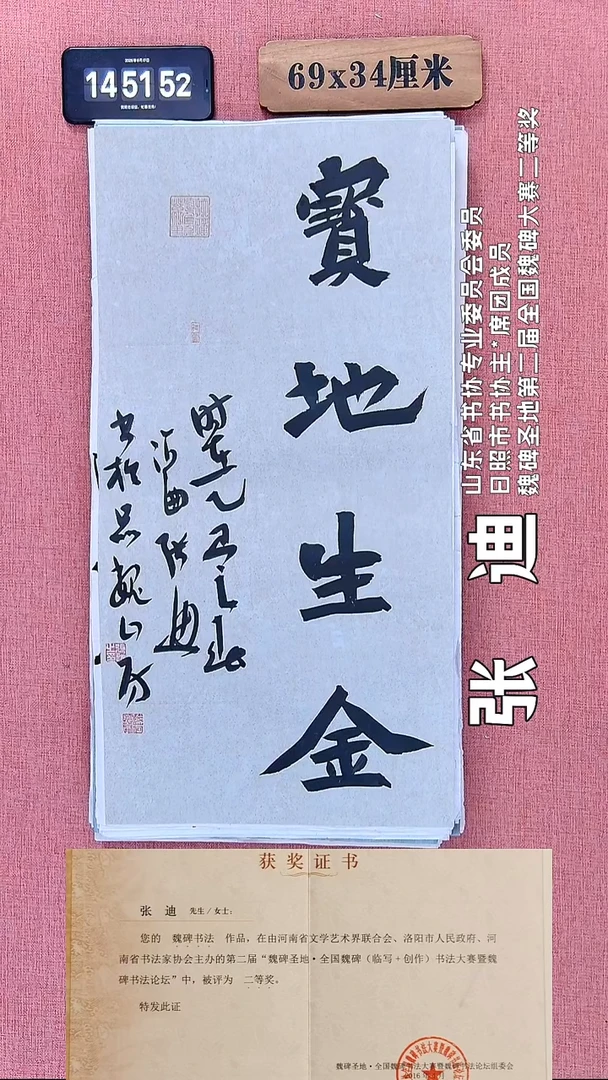 14 51 52
69x34厘米
寳地生金
山东省书协专业委员会委员
日照市书协主*席团成员
魏碑圣地第二届全国魏碑大赛二等奖
张 迪
获奖证书
张 迪 先生/女士：
您的 魏碑书法 作品，在由河南省文学艺术界联合会、洛阳市人民政府、河
南省书法家协会主办的第二届“魏碑圣地·全国魏碑（临写+创作）书法大赛暨魏
碑书法论坛”中，被评为 二等奖。
特发此证
魏碑圣地·全国魏碑书法大赛暨魏碑书法论坛组委会